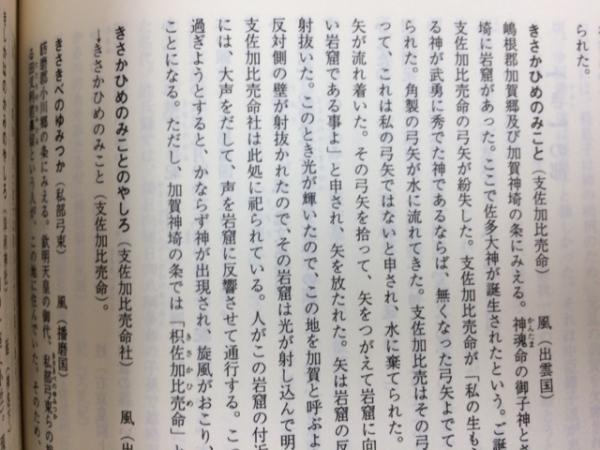 られた。
きさかひめのみこと（支佐加比売命）　　風（出雲国）
嶋根郡加賀郷及び加賀神埼の条にみえる。神魂命の御子神とさ
埼に岩窟があった。ここで佐多大神が誕生されたという。ご誕
支佐加比売命の弓矢が紛失した。支佐加比売命が「私の生も
る神が武勇に秀でた神であるならば、無くなった弓矢よでて
られた。角製の弓矢が水に流れてきた。支佐加比売はその弓
って、これは私の弓矢ではないと申され、水に棄てられた。
矢が流れ着いた。その弓矢を拾って、矢をつがえて岩窟に向
い岩窟である事よ」と申され、矢を放たれた。矢は岩窟の反
射抜いた。このとき光が輝いたので、この地を加賀と呼ぶよ
反対側の壁が射抜かれたので、その岩窟は光が射し込んで明
支佐加比売命社は此処に祀られている。人がこの岩窟の付近
には、大声をだして、声を岩窟に反響させて通行する。こ
過ぎようとすると、かならず神が出現され、旋風がおこり、
ことになる。ただし、加賀神埼の条では「枳佐加比売命」
きさかひめのみことのやしろ（支佐加比売命社）　　風（出
→きさかひめのみこと（支佐加比売命）。
きさきべのゆみつか（私部弓束）　風（播磨国）
餝磨郡小川郷の条にみえる。欽明天皇の御代、私部弓束らの
という人が、この地に住んでいた。そのため、